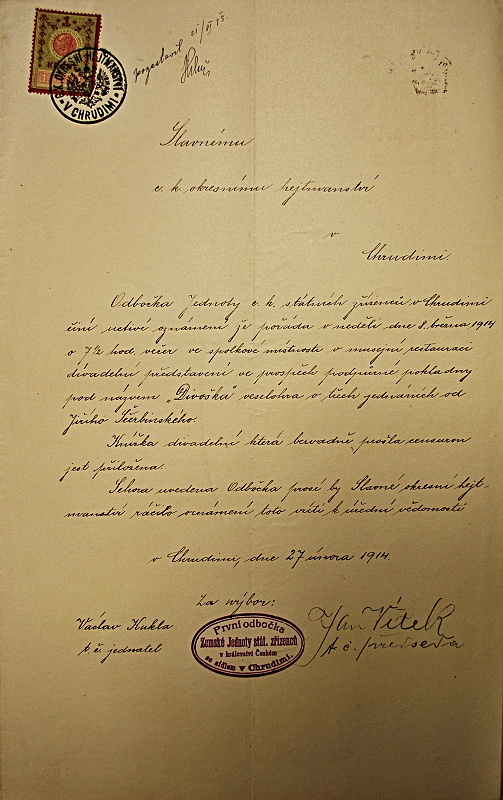 1
V CHRUDIMI
Slavnému
c. k. okresnímu hejtmanství
v
Chrudimi.
Odbočka Jednoty c. k. státních zřízenců v Chrudimi
činí uctivé oznámení že pořádá v neděli dne 8. března 1914
o 7½ hod. večer ve spolkové místnosti v musejní restauraci
divadelní představení ve prospěch podpůrné pokladny
pod názvem „Divoška" veselohra o třech jednáních od
Jiřího Ščerbinského.
Knížka divadelní která bezvadně prošla censurou
jest přiložena.
Schora uvedena Odbočka prosí by Slavné okresní hejt-
manství ráčilo oznámení toto vzíti k úřední vědomosti
v Chrudimi, dne 27 února 1914.
Za výbor:
Václav Kukla
t. č. jednatel
První odbočka
Zemské Jednoty stát. zřízenců
v království Českém
se sídlem v Chrudimi.
Jan Vítek
t. č. předseda